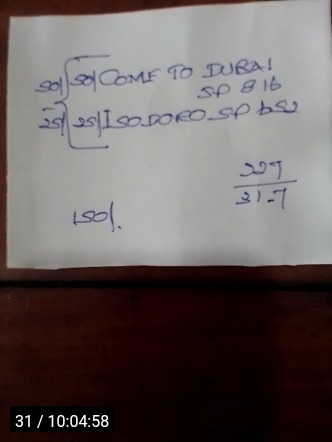 50/ 50/ COME TO DUBAI
SP 8 1b
25/ 25/ ISODORO SP
227
31-7
150/.
31 / 10:04:58